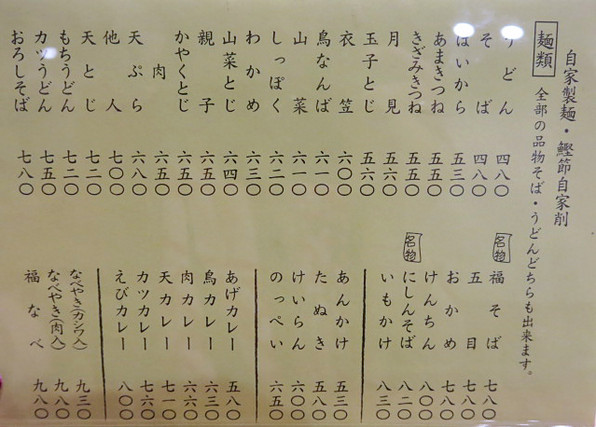 自家製麺・鰹節自家削
麺類 全部の品物そば・うどんどちらも出来ます。
うどん 四八〇
そば 四八〇
はいから 五三〇
あまきつね 五五〇
きざみきつね 五五〇
月見 五五〇
玉子とじ 五六〇
衣笠 六〇〇
鳥なんば 六一〇
山菜 六一〇
しっぽく 六二〇
わかめ 六三〇
山菜とじ 六四〇
親子 六五〇
かやくとじ 六五〇
肉 六五〇
天ぷら 六八〇
他人 七〇〇
天とじ 七二〇
もちうどん 七二〇
カツうどん 七五〇
おろしそば 七八〇
名物 福そば 七八〇
五目 七八〇
おかめ 七八〇
けんちん 八〇〇
名物 にしんそば 八二〇
いもかけ 八三〇
あんかけ 五三〇
たぬき 五八〇
けいらん 六〇〇
のっぺい 六五〇
あげカレー 五八〇
鳥カレー 六三〇
肉カレー 六六〇
天カレー 七一〇
カツカレー 七六〇
えびカレー 八〇〇
なべやき(カシワ入) 九三〇
なべやき(肉入) 九八〇
福なべ 九八〇